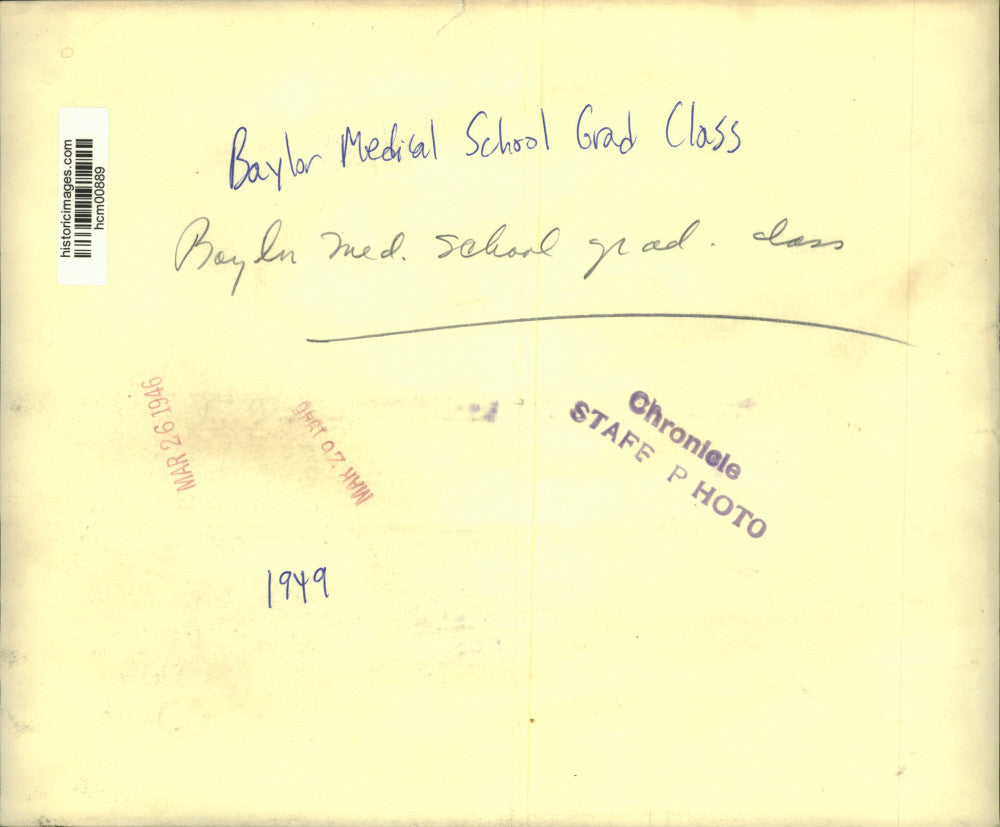 historicimages.com
hcm00889
Baylor Medical School Grad Class
Baylor med. school grad. class
MAR 26 1946
MAR 20 1946
Chronicle
STAFF PHOTO
1949